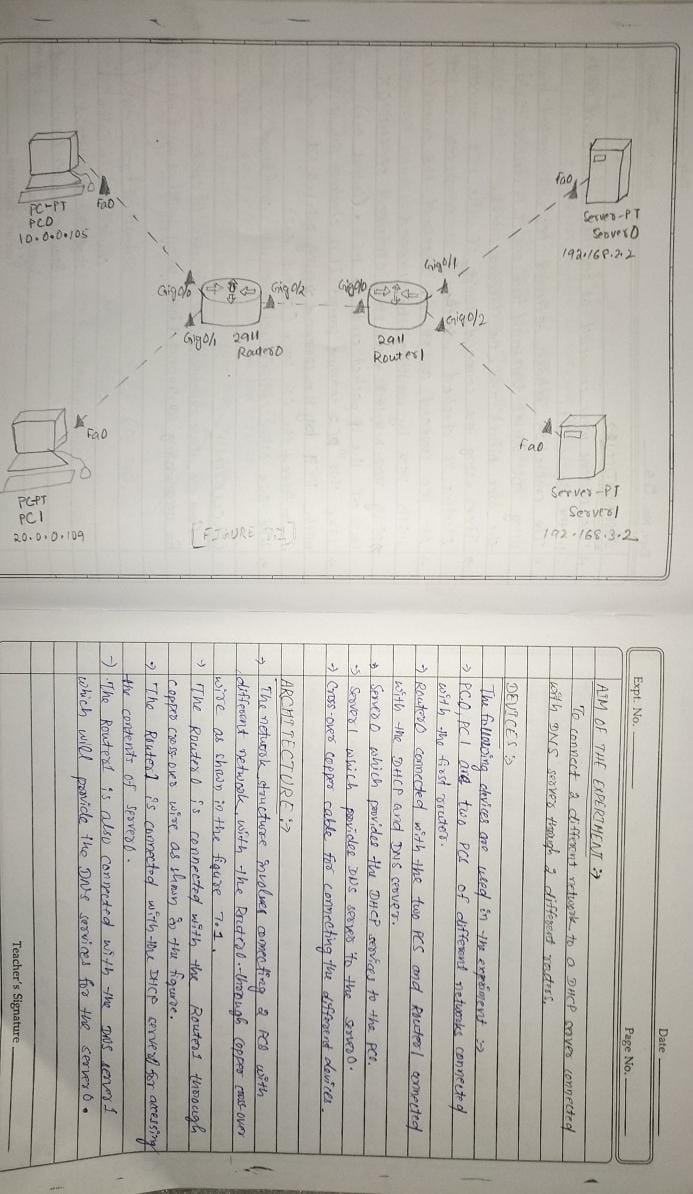 Fa0
PC-PT
PC0
10.0.0.105
Fa0
Server-PT
Server0
192.168.2.2
Gig0/0
Gig0/2
Gig0/1
2911
Router0
Gig0/0
Gig0/1
Gig0/2
2911
Router1
Fa0
PC-PT
PC1
20.0.0.109
Fa0
Server-PT
Server1
192.168.3.2
[FIGURE 7.1]
Date
Expt. No.
Page No.
AIM OF THE EXPERIMENT :->
To connect 2 different network to a DHCP server connected
with DNS server through 2 different routers.
DEVICES :->
The following devices are used in the expriment :->
-> PC0, PC1 are two PCs of different networks connected
with the first router.
-> Router0 connected with the two PCs and Router1 connected
with the DHCP and DNS server.
-> Server0 which provides the DHCP services to the PCs.
-> Server1 which provides DNS server to the server0.
-> Cross over copper cable for connecting the different devices.
ARCHITECTURE :->
-> The network structure involves connecting 2 PCs with
different network, with the Router0 through copper cross-over
wire as shown in the figure 7.1.
-> The Router0 is connected with the Router1 through
copper cross-over wire as shown in the figure.
-> The Router1 is connected with the DHCP server0 for accessing
the contents of server0.
-> The Router1 is also connected with the DNS server1
which will provide the DNS services for the server0.
Teacher's Signature